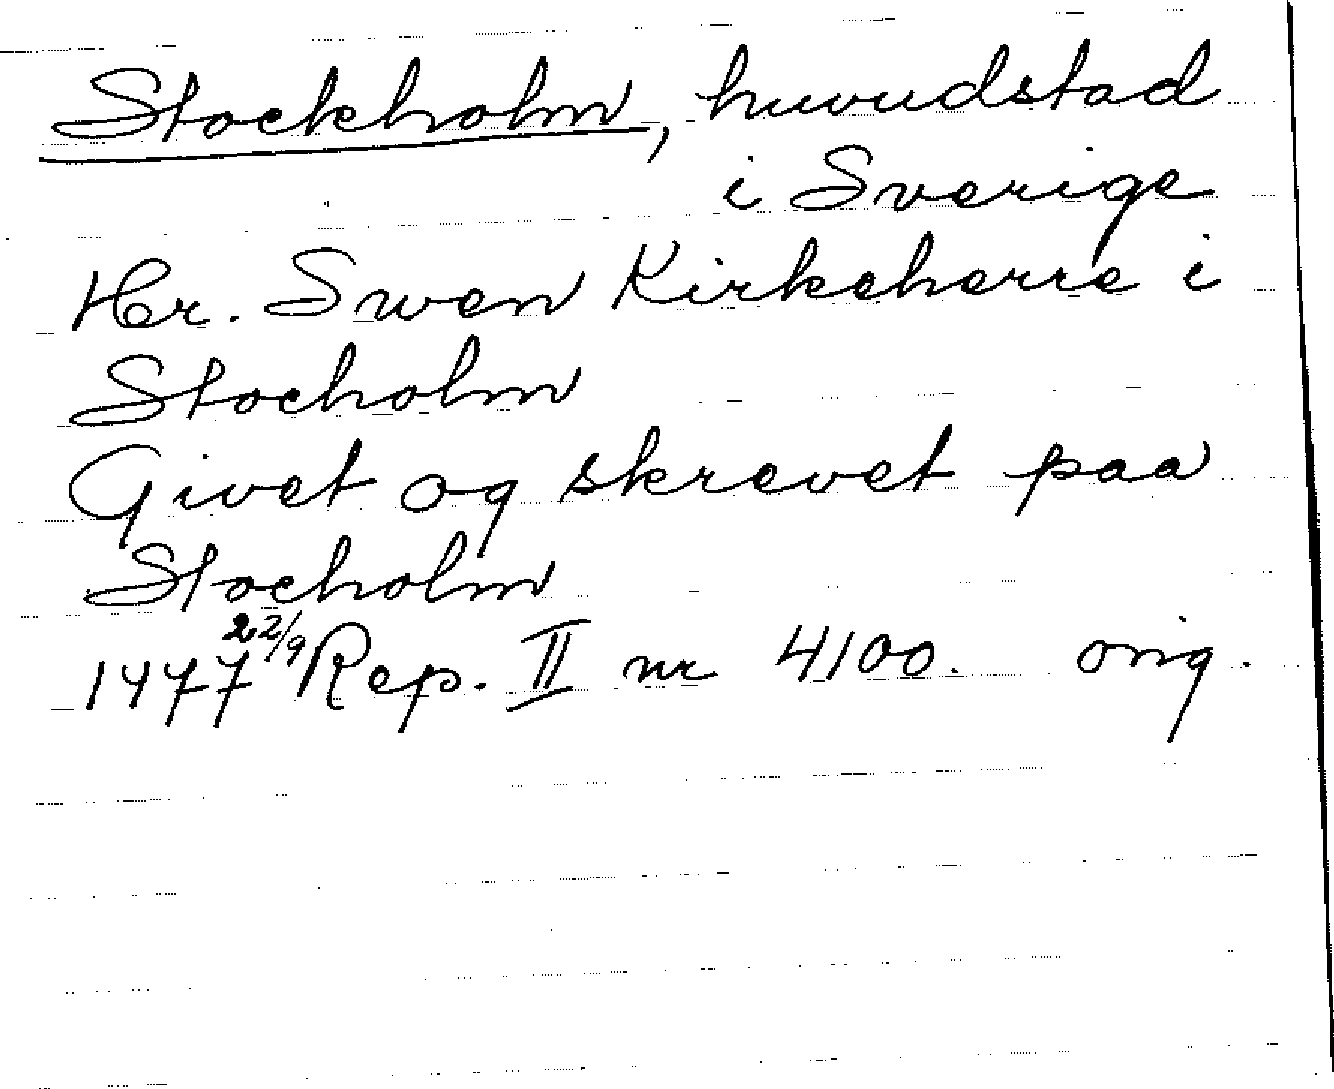 Stockholm, huvudstad
i Sverige
Hr. Swen Kirkeherre i
Stocholm
Givet og skrevet paa
Stocholm
1477 22/9 Rep. II nr 4100. orig.